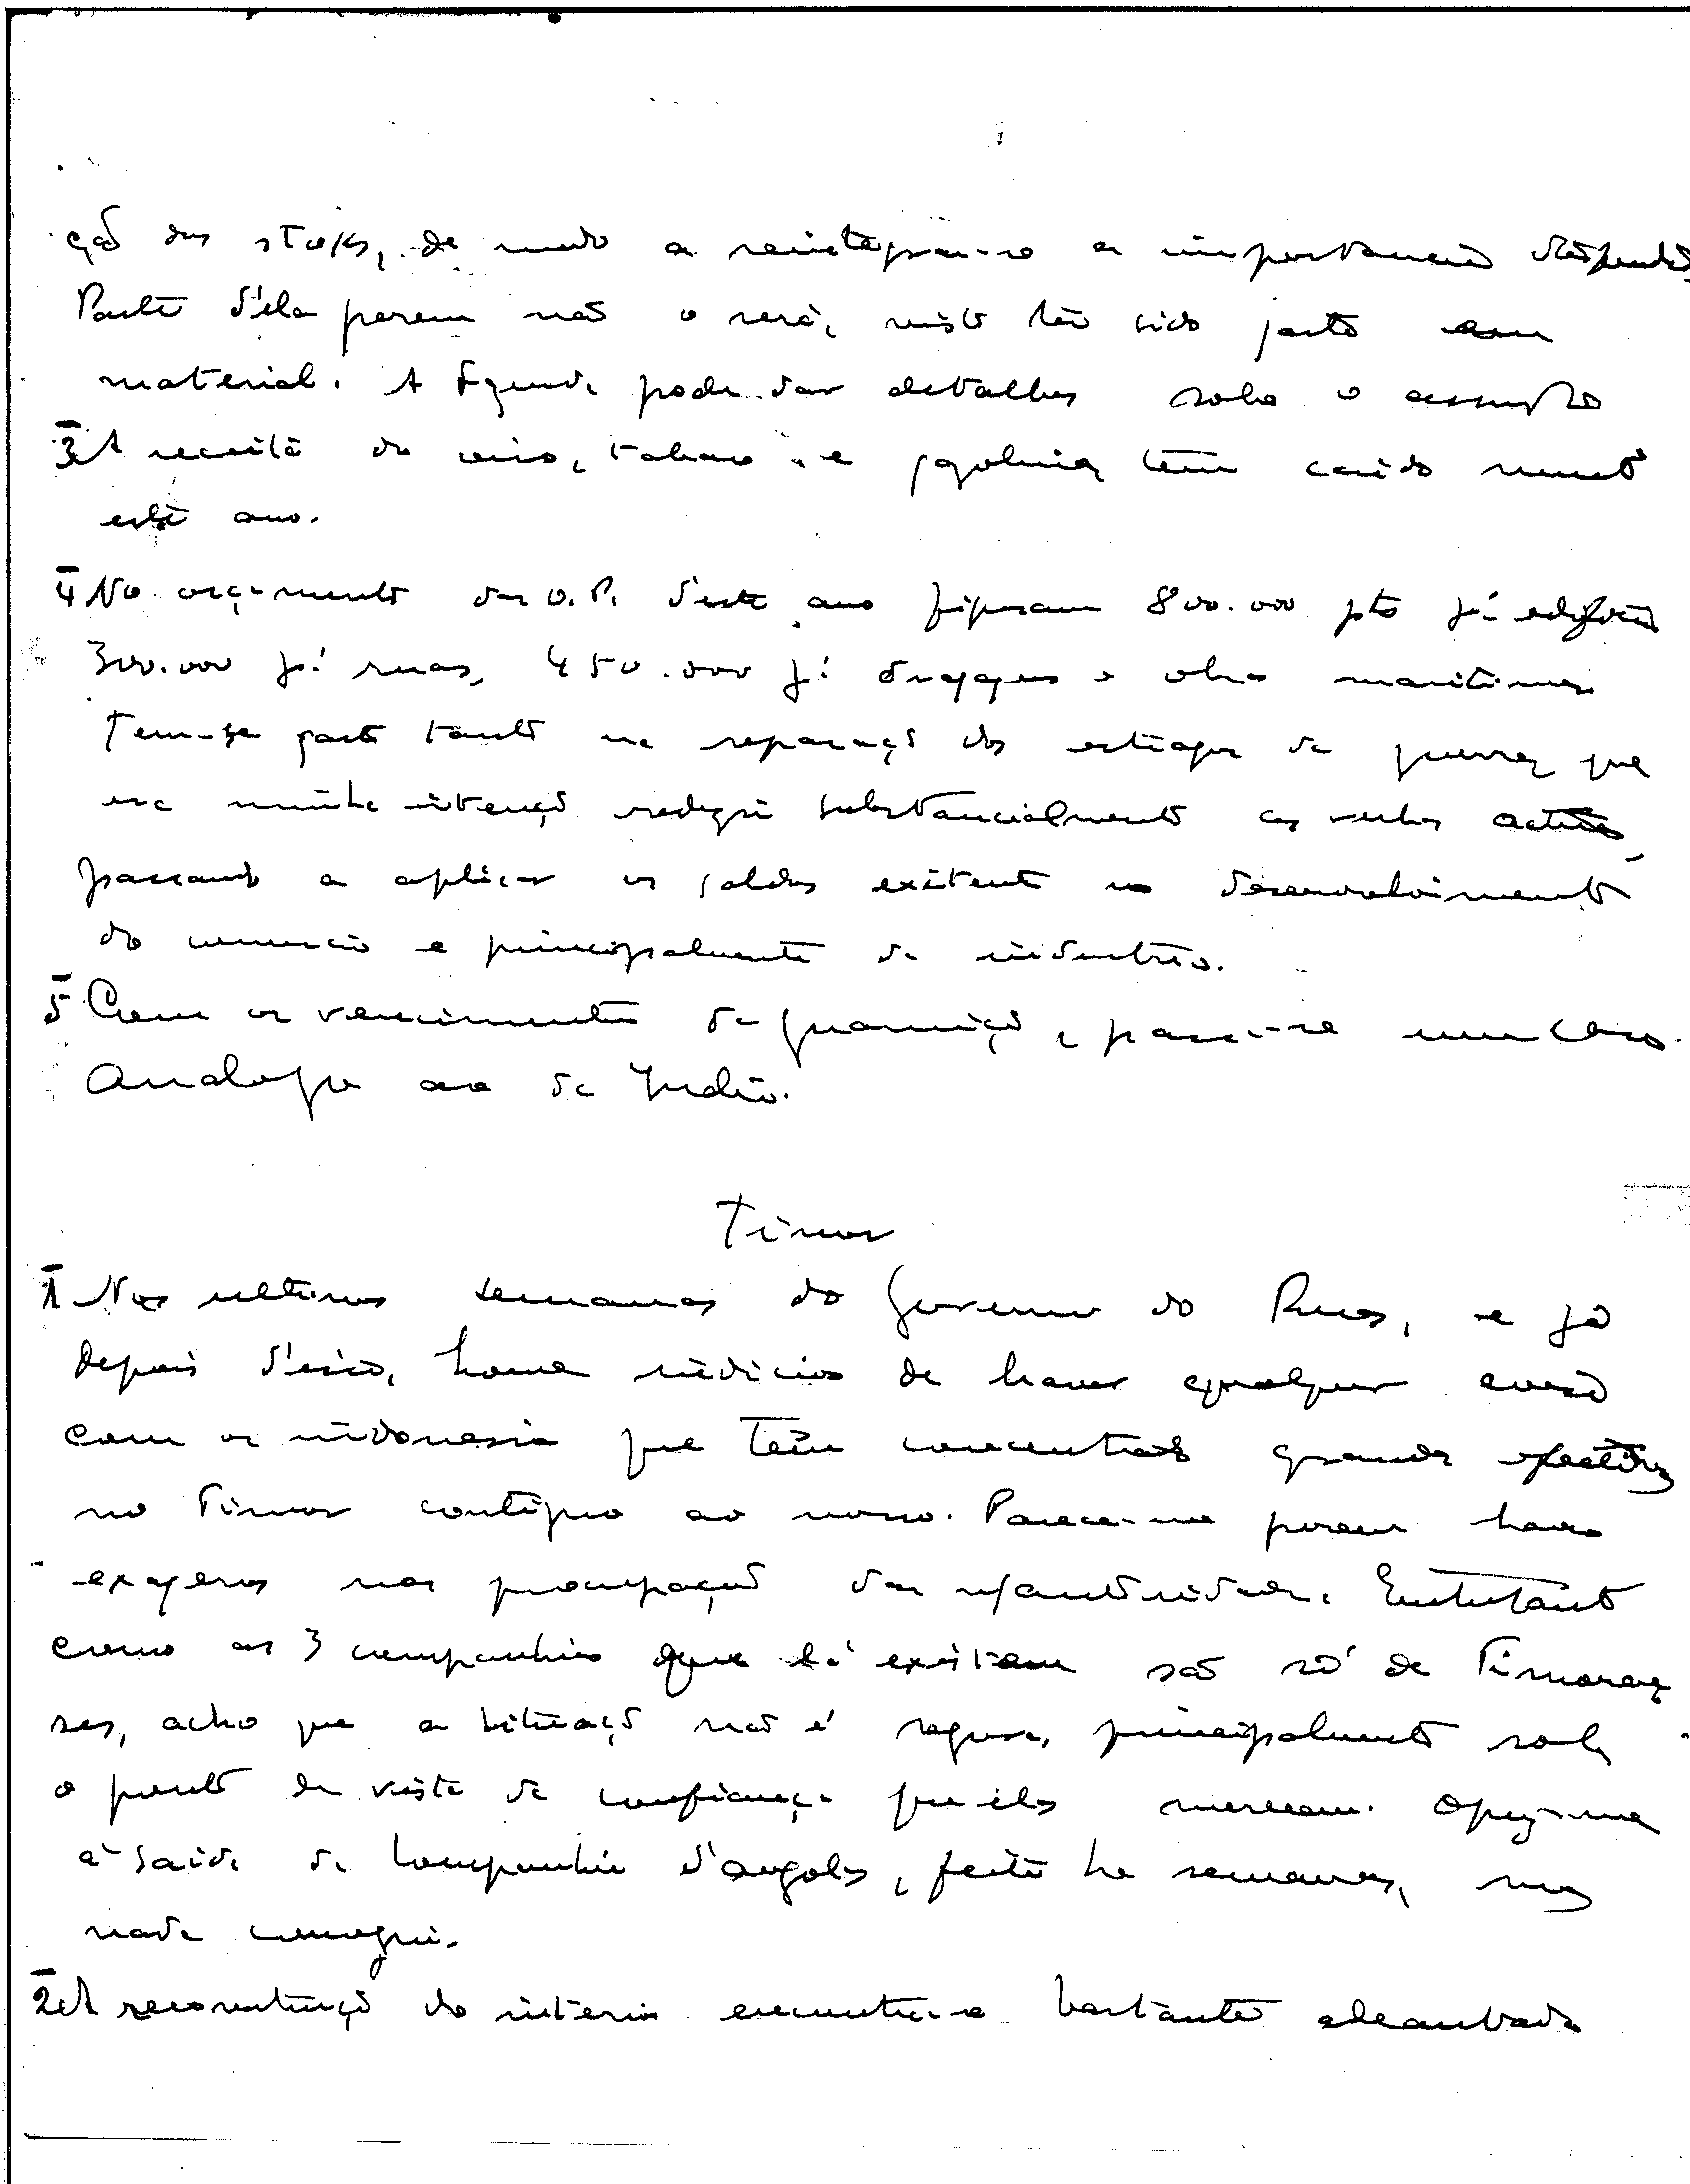 ção dos stoks, de modo a reintegrar-se a importancia
Parte d'ela porem não o será, visto ter sido gasto em
material. A Fazenda pode dar detalhes sobre o assumpto
3 A receita do opio, tabaco e gazolina tem caido muito
este ano.
4 No orçamento das O.P. d'este ano figuram 800.000 pts pª edificios
300.000 pª ruas, 450.000 pª dragagens e obras maritimas
Tem-se gasto tanto na reparação dos estragos da guerra que
é minha intenção reduzir substancialmente as verbas
passando a aplicar os saldos existentes no desenvolvimento
do comercio e principalmente da industria.
5 Com os vencimentos da guarnição, passa-se um caso
analogo ao da India.
Timor
1 Nas ultimas semanas do Governo do Ruas, e já
depois d'isso, houve indicios de haver qualquer
com os indonesios que têm concentrado grandes efectivos
no Timor contiguo ao nosso. Parece-me porem haver
exageros nas preocupações das autoridades. Entretanto
como as 3 companhias que lá existem são só de Timoren
ses, acho que a situação não é segura, principalmente sob
o ponto de vista da confiança que eles merecem. Opuz-me
á saida da Companhia d'Angola, feita ha semanas, mas
nada consegui.
2 A reconstrução do interior encontra-se bastante adeantada